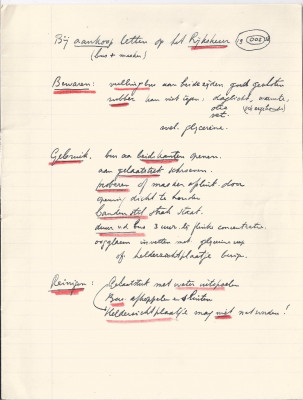 Bij aankoop letten op het Rijkskeur
(bus + masker)
Bewaren: vullingbus aan beide zijden goed gesloten
rubber kan niet tegen: daglicht, warmte,
olie
vet.
wel glycerine.
Gebruik. bus aan beide kanten openen.
aan gelaatstuk schroeven.
proberen of masker afsluit door
opening dicht te houden
banden stel strak staat.
duur v.d. bus 3 uur te flinke concentratie.
ooglazen inzetten met glycerine zeep
of helderzichtplaatje
Reinigen: Gelaatstuk met water uitspoelen
Bus afkoppelen en sluiten
Helderzichtplaatje mag niet nat worden!